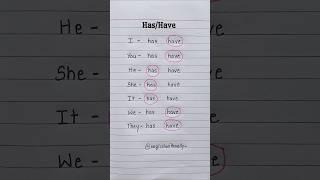 Has/Have
I - has have
You - has have
He - has have
She - has have
It - has have
We - has have
They - has have